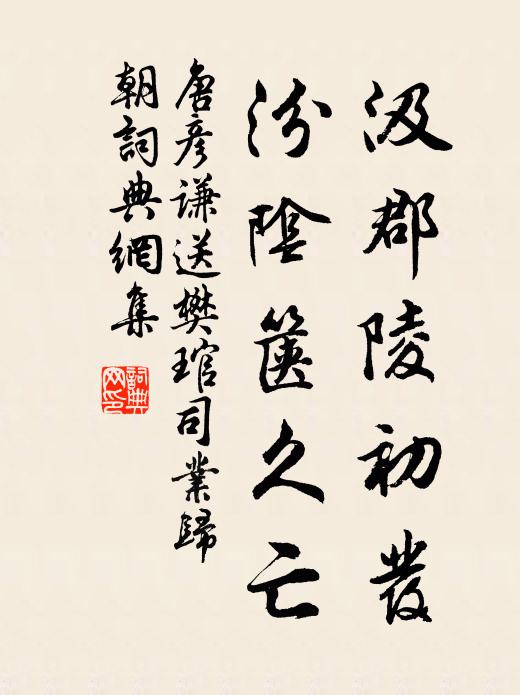 汲郡陵初發
汾陰篋久亡
唐彥謙送樊琯司業歸
朝詞典網集
詞典網印